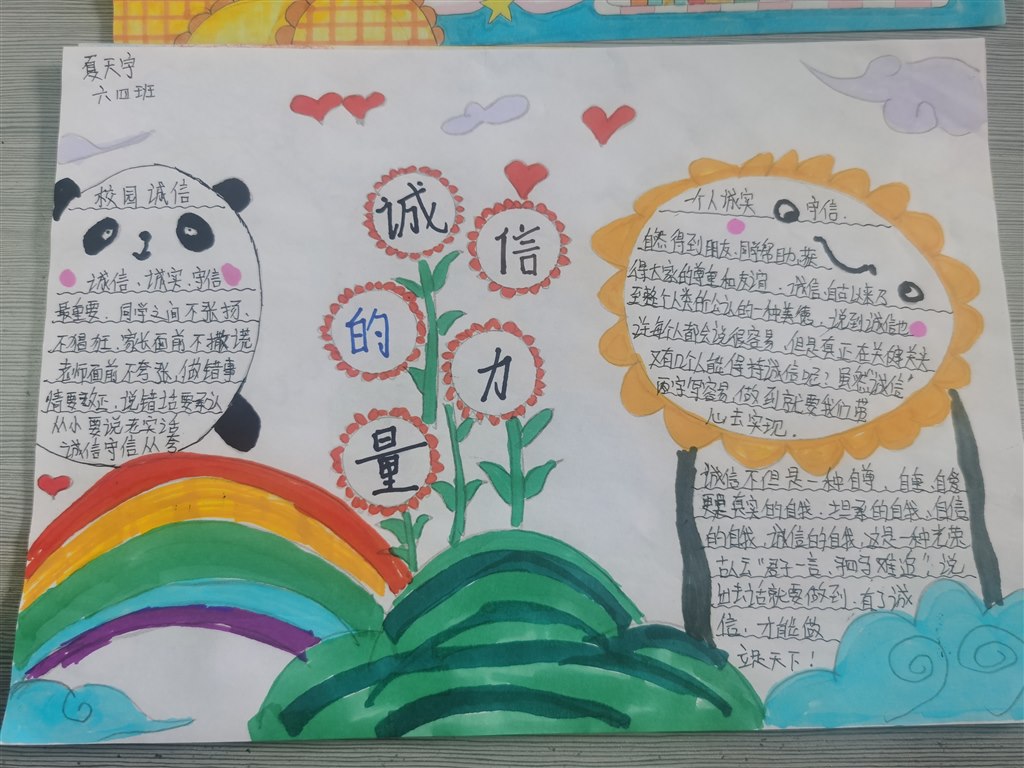 夏天宇
六四班
校园诚信
诚信、诚实、守信
最重要、同学之间不张扬、
不猖狂、家长面前不撒谎
老师面前不夸张、做错事
情要改正、说错话要承认
从小要说老实话
诚信守信从夸
诚
信
的
力
量
一个人诚实守信.
自然得到朋友、同学帮助、获
得大家的尊重和友谊、诚信、自古以来乃
至整个人类所公认的一种美德、说到诚信也
许每个人都会说很容易、但是真正在关键关头
又有几个人能保持诚信呢？虽然"诚信"
两字写容易、做到就要我们带
心去实现.
诚信不但是一种自尊、自重、自爱
更是真实的自我、坦承的自我、自信
的自我、诚信的自我、这是一种光荣
古人云"君子一言、驷马难追"、说
出的话就要做到、有了诚
信、才能做
立足天下！